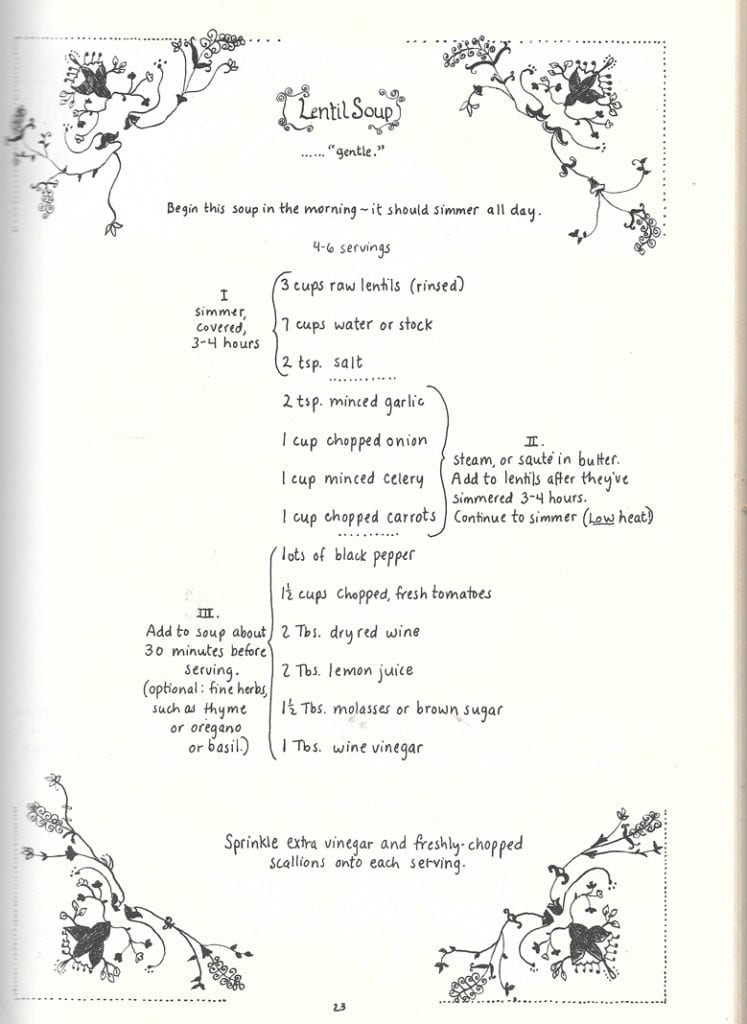 Lentil Soup
...... "gentle."
Begin this soup in the morning ~ it should simmer all day.
4-6 servings
I
simmer,
covered,
3-4 hours
3 cups raw lentils (rinsed)
7 cups water or stock
2 tsp. salt
2 tsp. minced garlic
1 cup chopped onion
1 cup minced celery
1 cup chopped carrots
II.
steam, or sauté in butter.
Add to lentils after they've
simmered 3-4 hours.
Continue to simmer (Low heat!)
III.
Add to soup about
30 minutes before
serving.
(optional: fine herbs,
such as thyme
or oregano
or basil.)
lots of black pepper
1½ cups chopped, fresh tomatoes
2 Tbs. dry red wine
2 Tbs. lemon juice
1½ Tbs. molasses or brown sugar
1 Tbs. wine vinegar
Sprinkle extra vinegar and freshly-chopped
scallions onto each serving.
23